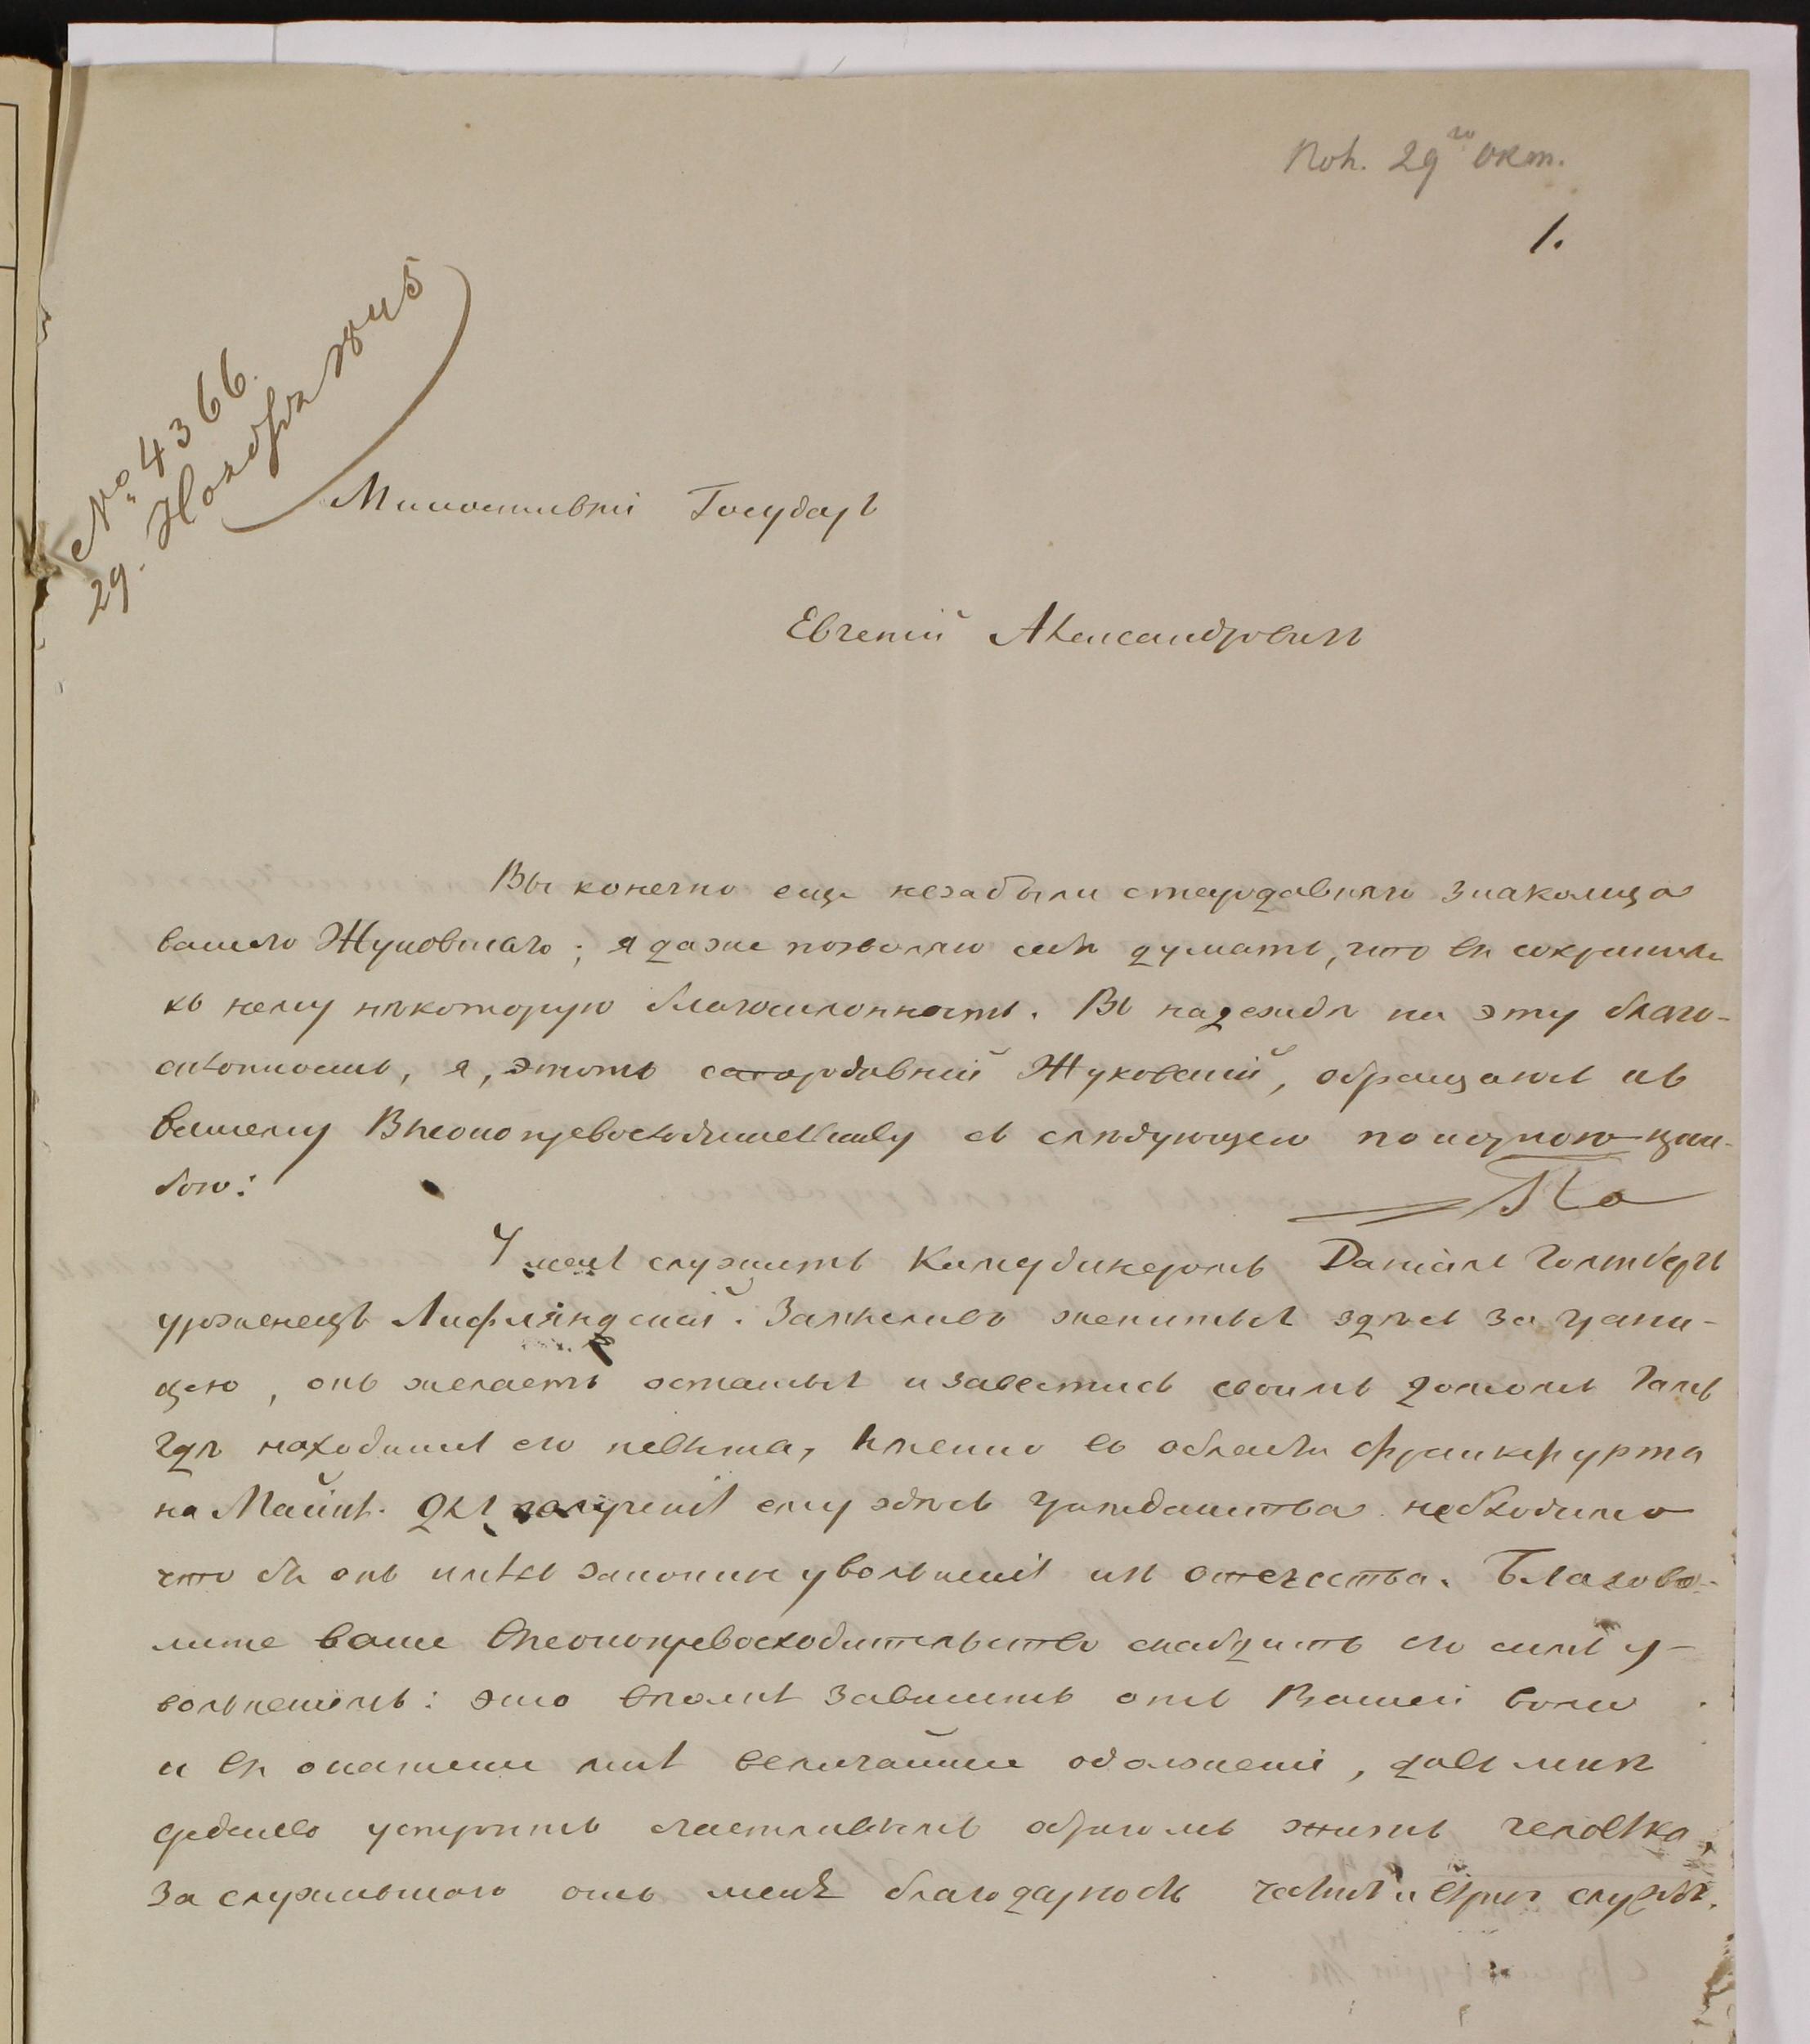 Пол. 29го Окт.
1.
№ 4366.
29. Ноября 1845
Милостивый Государь
Евгений Александровичь
Вы конечно еще незабыли стародавняго знакомца
вашего Жуковскаго; я даже позволяю себѣ думать, что вы сохранили
къ нему нѣкоторую благосклонность. Въ надеждѣ на эту благо-
склонность, я, этотъ стародавний Жуковский, обращаюсь къ
вашему Высокопревосходительству съ слѣдующею покорною прозь-
бою:
У меня служитъ Камердинеромъ Даніилъ Голтбергъ
уроженецъ Лифляндской. Замысливъ жениться здѣсь за грани-
цею, онъ желаетъ остаться и завестись своимъ домомъ тамъ
гдѣ находится его невѣста, именно въ области Франкфурта
на Майнѣ. Для полученія ему здѣсь гражданства необходимо
что бы онъ имѣлъ законное увольненіе изъ отечества. Благово-
лите ваше Высокопревосходительство снабдить его симъ у-
вольненіемъ: это вполнѣ зависитъ отъ Вашей воли
и вы окажете мнѣ величайшее одолженіе, давъ мнѣ
средство устроить счастливымъ образомъ жизнь человѣка,
заслужившаго отъ меня благодарность честной и вѣрной службой.